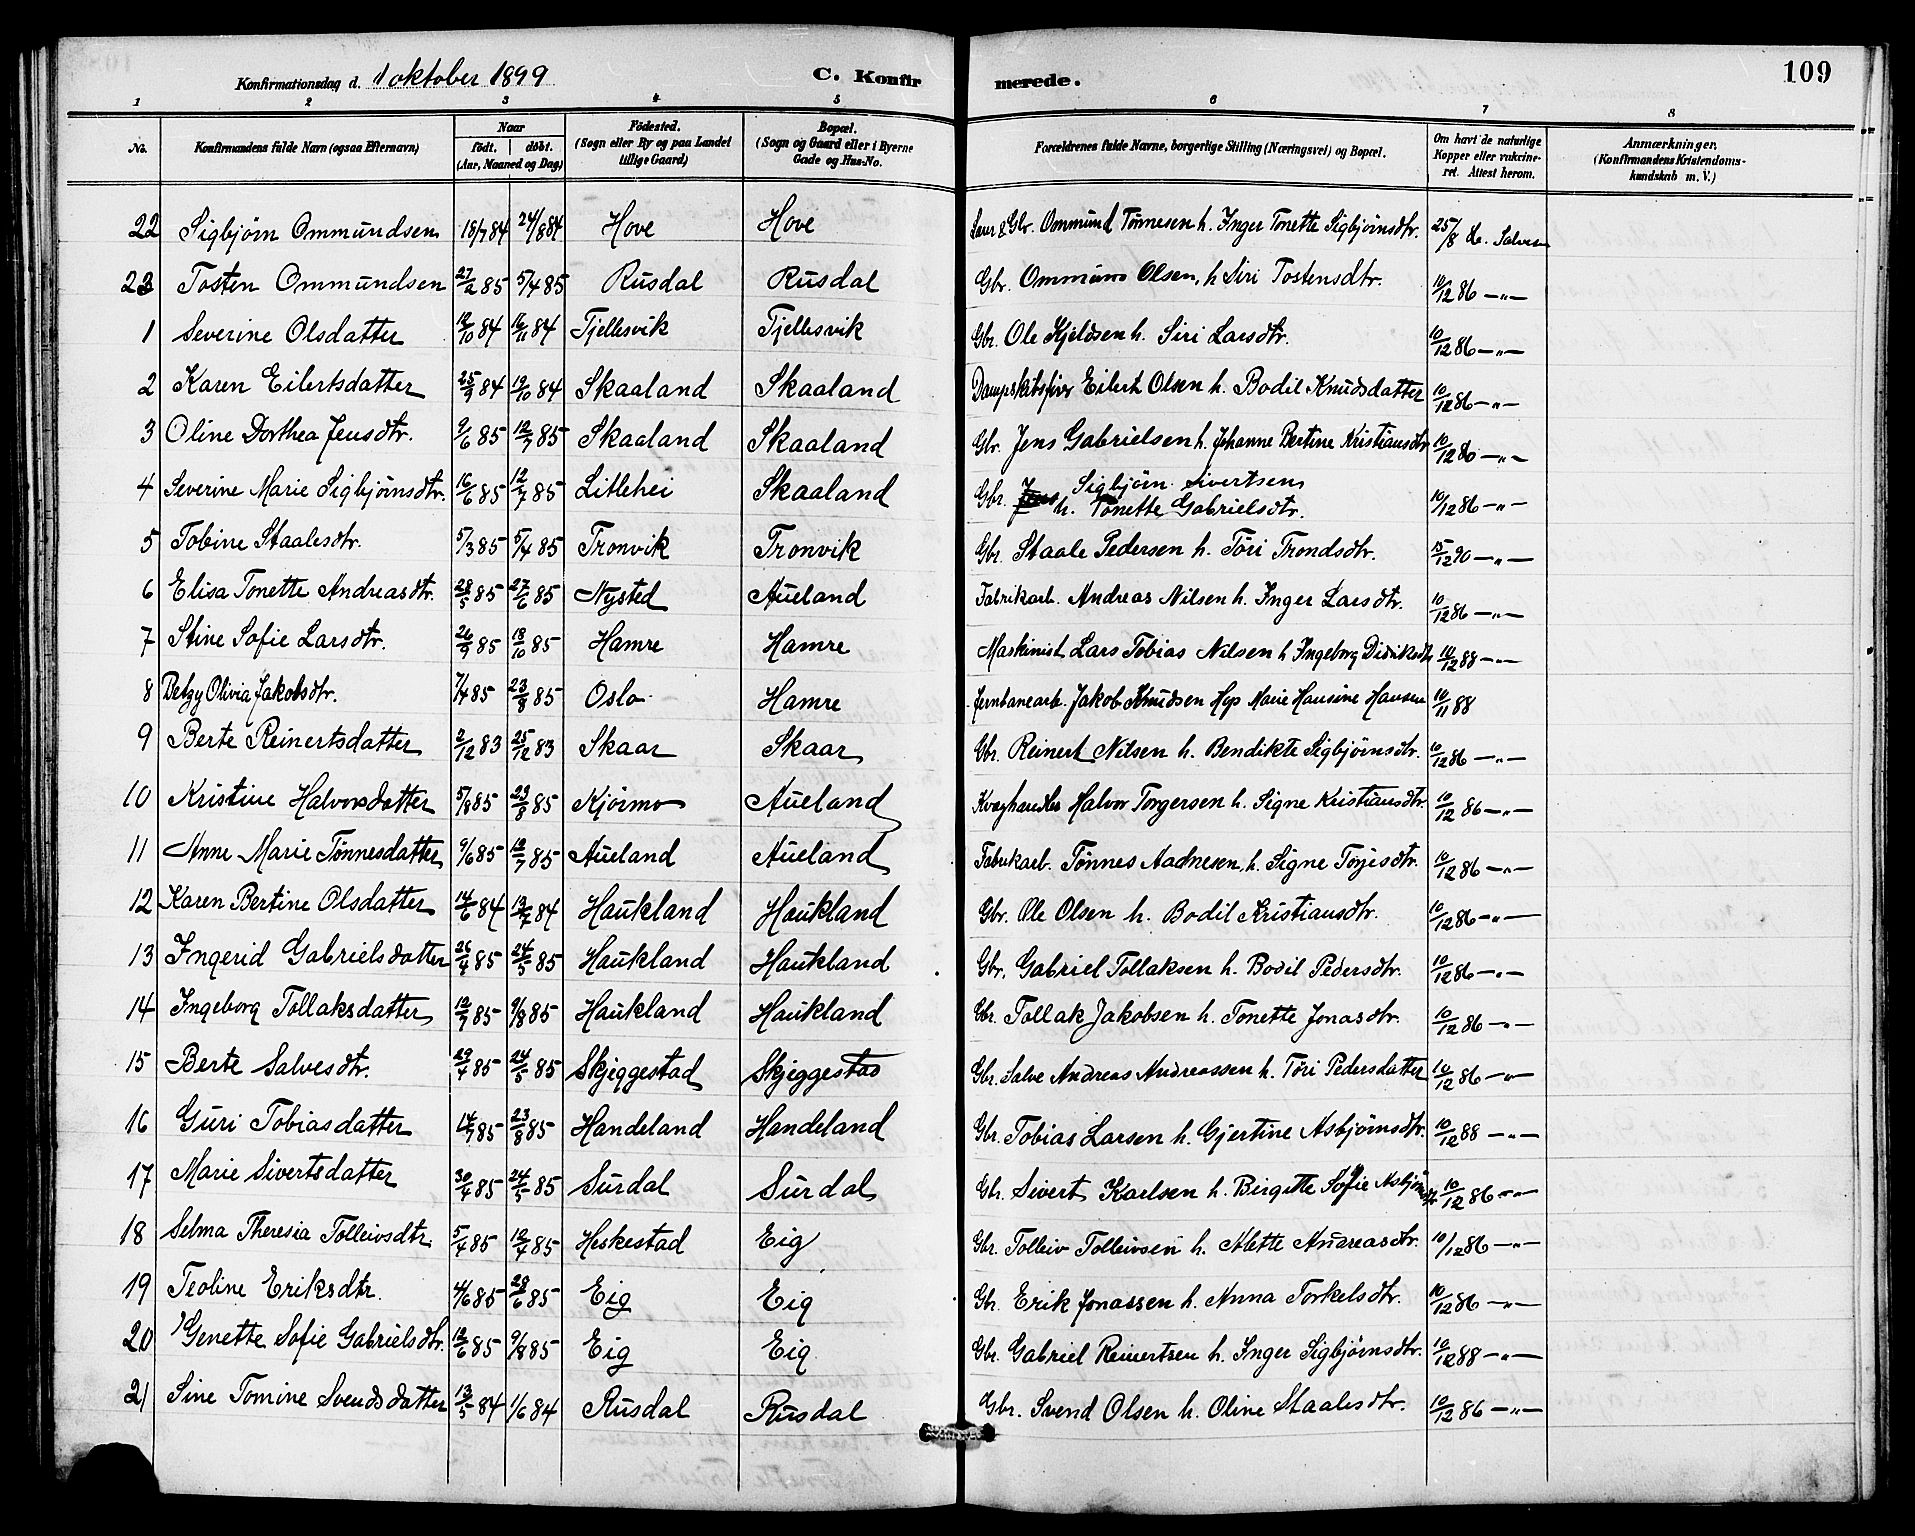 109
Konfirmationsdag d. 1 oktober 1899 C. Konfir merede.
1 2 3 4 5 6 7 8
No. Konfirmandens fulde Navn (ogsaa Efternavn) Naar født. døbt. (Aar, Maaned og Dag) Fødested. (Sogn eller By og paa Landet tillige Gaard) Bopæl. (Sogn og Gaard eller i Byerne Gade og Hus-No. Forældrenes fulde Navne, borgerlige Stilling (Næringsvei) og Bopæl. Om havt de naturlige Kopper eller vakcineret. Attest herom. Anmærkninger. (Konfirmandens Kristendomskundskab m. V.)
22 Sigbjørn Ommundsen 18/7 84 24/8 84 Hove Hove & Gbr. Ommund Tønnesen h. Inger Tonette Sigbjørnsdtr. 25/8 86. Salvesen
23 Tosten Ommundsen 27/2 85 5/4 85 Rusdal Rusdal Gbr. Ommund Olsen, h Siri Tostensdtr. 10/12 86 —"—
1 Severine Olsdatter 12/10 84 16/11 84 Tjellesvik Tjellesvik Gbr. Ole Kjeldsen h. Siri Larsdtr. 10/12 86 —"—
2 Karen Eilertsdatter 25/9 84 19/10 84 Skaaland Skaaland Dampskibsfører Eilert Olsen h. Bodil Knudsdatter 10/12 86 —"—
3 Oline Dorthea Jensdtr. 9/6 85 12/7 85 Skaaland Skaaland Gbr. Jens Gabrielsen h. Johanne Bertine Kristiansdtr 10/12 86 —"—
4 Severine Marie Sigbjørnsdtr. 16/6 85 12/7 85 Litlehei Skaaland Gbr. Sigbjørn Sivertsen h. Tonette Gabrielsdtr. 10/12 86 —"—
5 Tobine Staalesdtr. 5/3 85 5/4 85 Tronvik Tronvik Gbr. Staale Pedersen h. Töri Trondsdtr. 15/12 90 —"—
6 Elisa Tonette Andreasdtr. 28/5 85 27/6 85 Nysted Aueland Fabrikarb. Andreas Nilsen h. Inger Larsdtr. 10/12 86 —"—
7 Stine Sofie Larsdtr. 26/9 85 18/10 85 Hamre Hamre Maskinist Lars Tobias Nilsen h Ingeborg Didriksdtr 10/12 88 —"—
8 Betzy Olivia Jakobsdtr. 7/4 85 23/8 85 Oslo Hamre Jernbanearb. Jakob Knudsen Hgs Marie Hansine Hansen 10/11 88
9 Berte Reinertsdatter 2/12 83 25/12 83 Skaar Skaar Gbr. Reinert Nilsen h. Bendikte Sigbjørnsdtr. 10/12 86 —"—
10 Kristine Halvorsdatter 5/8 85 23/8 85 Kjörmo Aueland Kvæghandler Halvor Torgersen h. Signe Kristiansdtr. 10/12 86 —"—
11 Anne Marie Tønnesdatter 9/6 85 12/7 85 Aueland Aueland Fabrikarb. Tønnes Aadnesen, h. Signe Torjesdtr. 10/12 86 —"—
12 Karen Bertine Olsdatter 14/6 84 13/7 84 Haukland Haukland Gbr. Ole Olsen h. Bodil Kristiansdtr. 10/12 86 —"—
13 Ingerid Gabrielsdatter 26/4 85 24/5 85 Haukland Haukland Gbr. Gabriel Tollaksen h. Bodil Pedersdtr. 10/12 86 —"—
14 Ingeborg Tollaksdatter 12/7 85 9/8 85 Haukland Haukland Gbr. Tollak Jakobsen h. Tonette Jonasdtr. 10/12 86 —"—
15 Berte Salvesdtr. 29/4 85 24/5 85 Skjeggestad Skjeggestad Gbr. Salve Andreas Andreassen h. Töri Pedersdatter 10/12 86 —"—
16 Guri Tobiasdatter 14/7 85 23/8 85 Handeland Handeland Gbr. Tobias Larsen h. Gjertine Asbjørnsdtr. 10/12 88 —"—
17 Marie Sivertsdatter 30/4 85 24/5 85 Surdal Surdal Gbr. Sivert Karlsen h. Birgitte Sofie Asbjørnsdtr 10/12 86 —"—
18 Selma Theresia Tolleivsdtr. 5/4 85 12/4 85 Heskestad Eig Gbr. Tolleiv Tolleivsen h. Alette Andreasdtr. 10/12 86 —"—
19 Teoline Eriksdtr. 4/6 85 28/6 85 Eig Eig Gbr. Erik Jonassen h. Anna Torkelsdtr. 10/12 86 —"—
20 Genette Sofie Gabrielsdtr. 12/6 85 9/8 85 Eig Eig Gbr. Gabriel Reinertsen h. Inger Sigbjørnsdtr. 10/12 88 —"—
21 Sine Tomine Svendsdatter 13/5 84 1/6 84 Rusdal Rusdal Gbr. Svend Olsen h. Oline Staalesdtr. 10/12 86 —"—